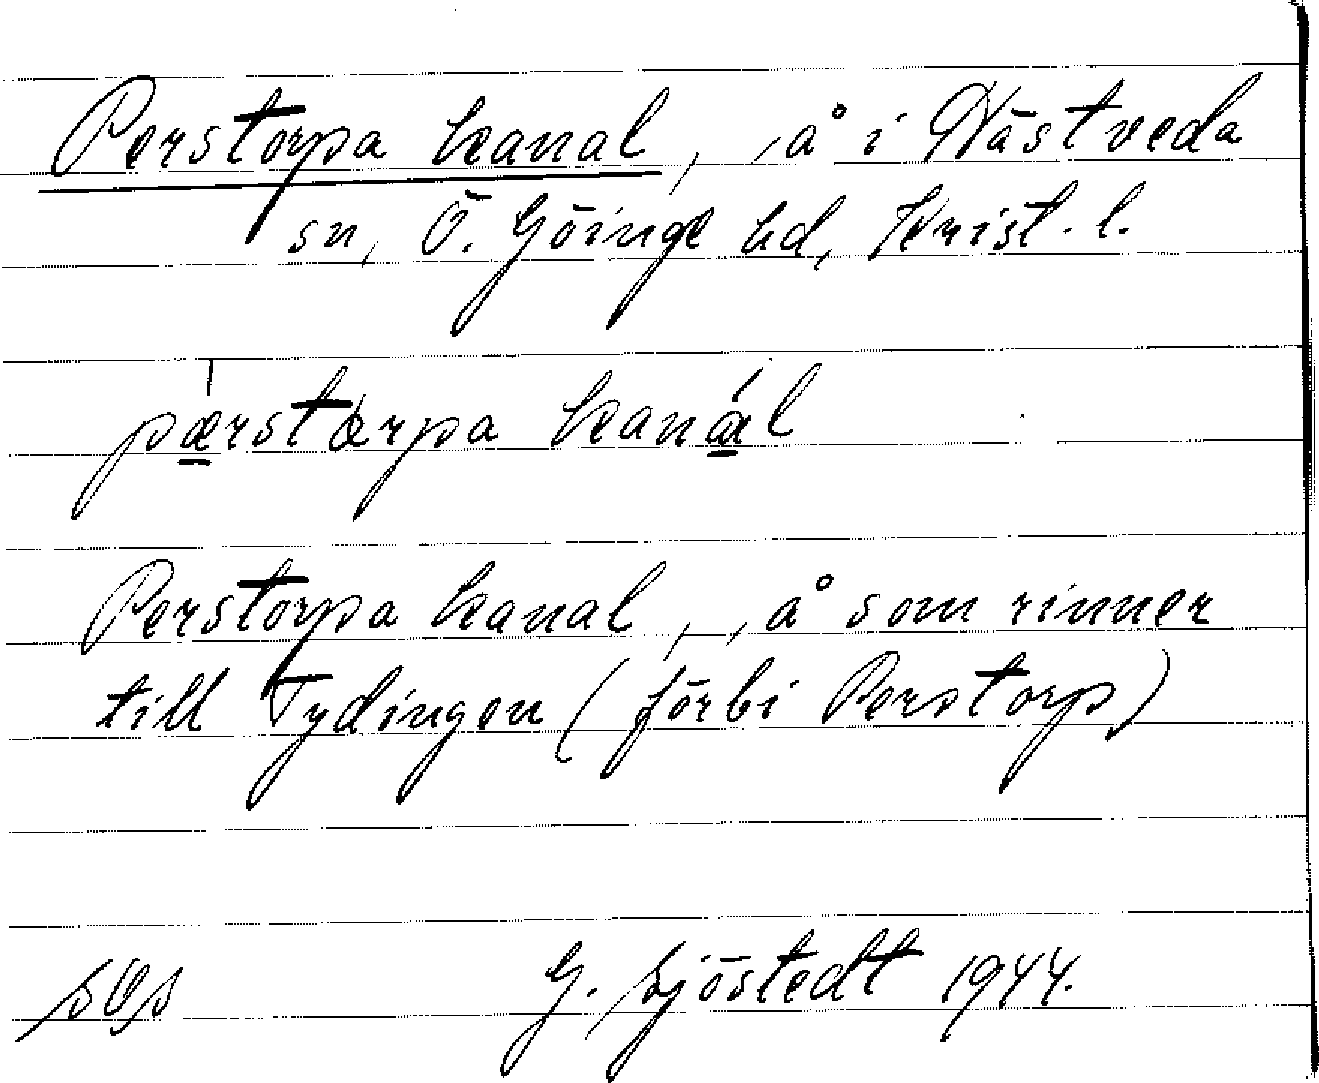 Perstorpa kanal, å i Nästveda
sn, Ö. Göinge hd, Krist. l.
pærstærpa kanál
Perstorpa kanal, å som rinner
till Tydingen (förbi Perstorp)
G. Sjöstedt 1944.